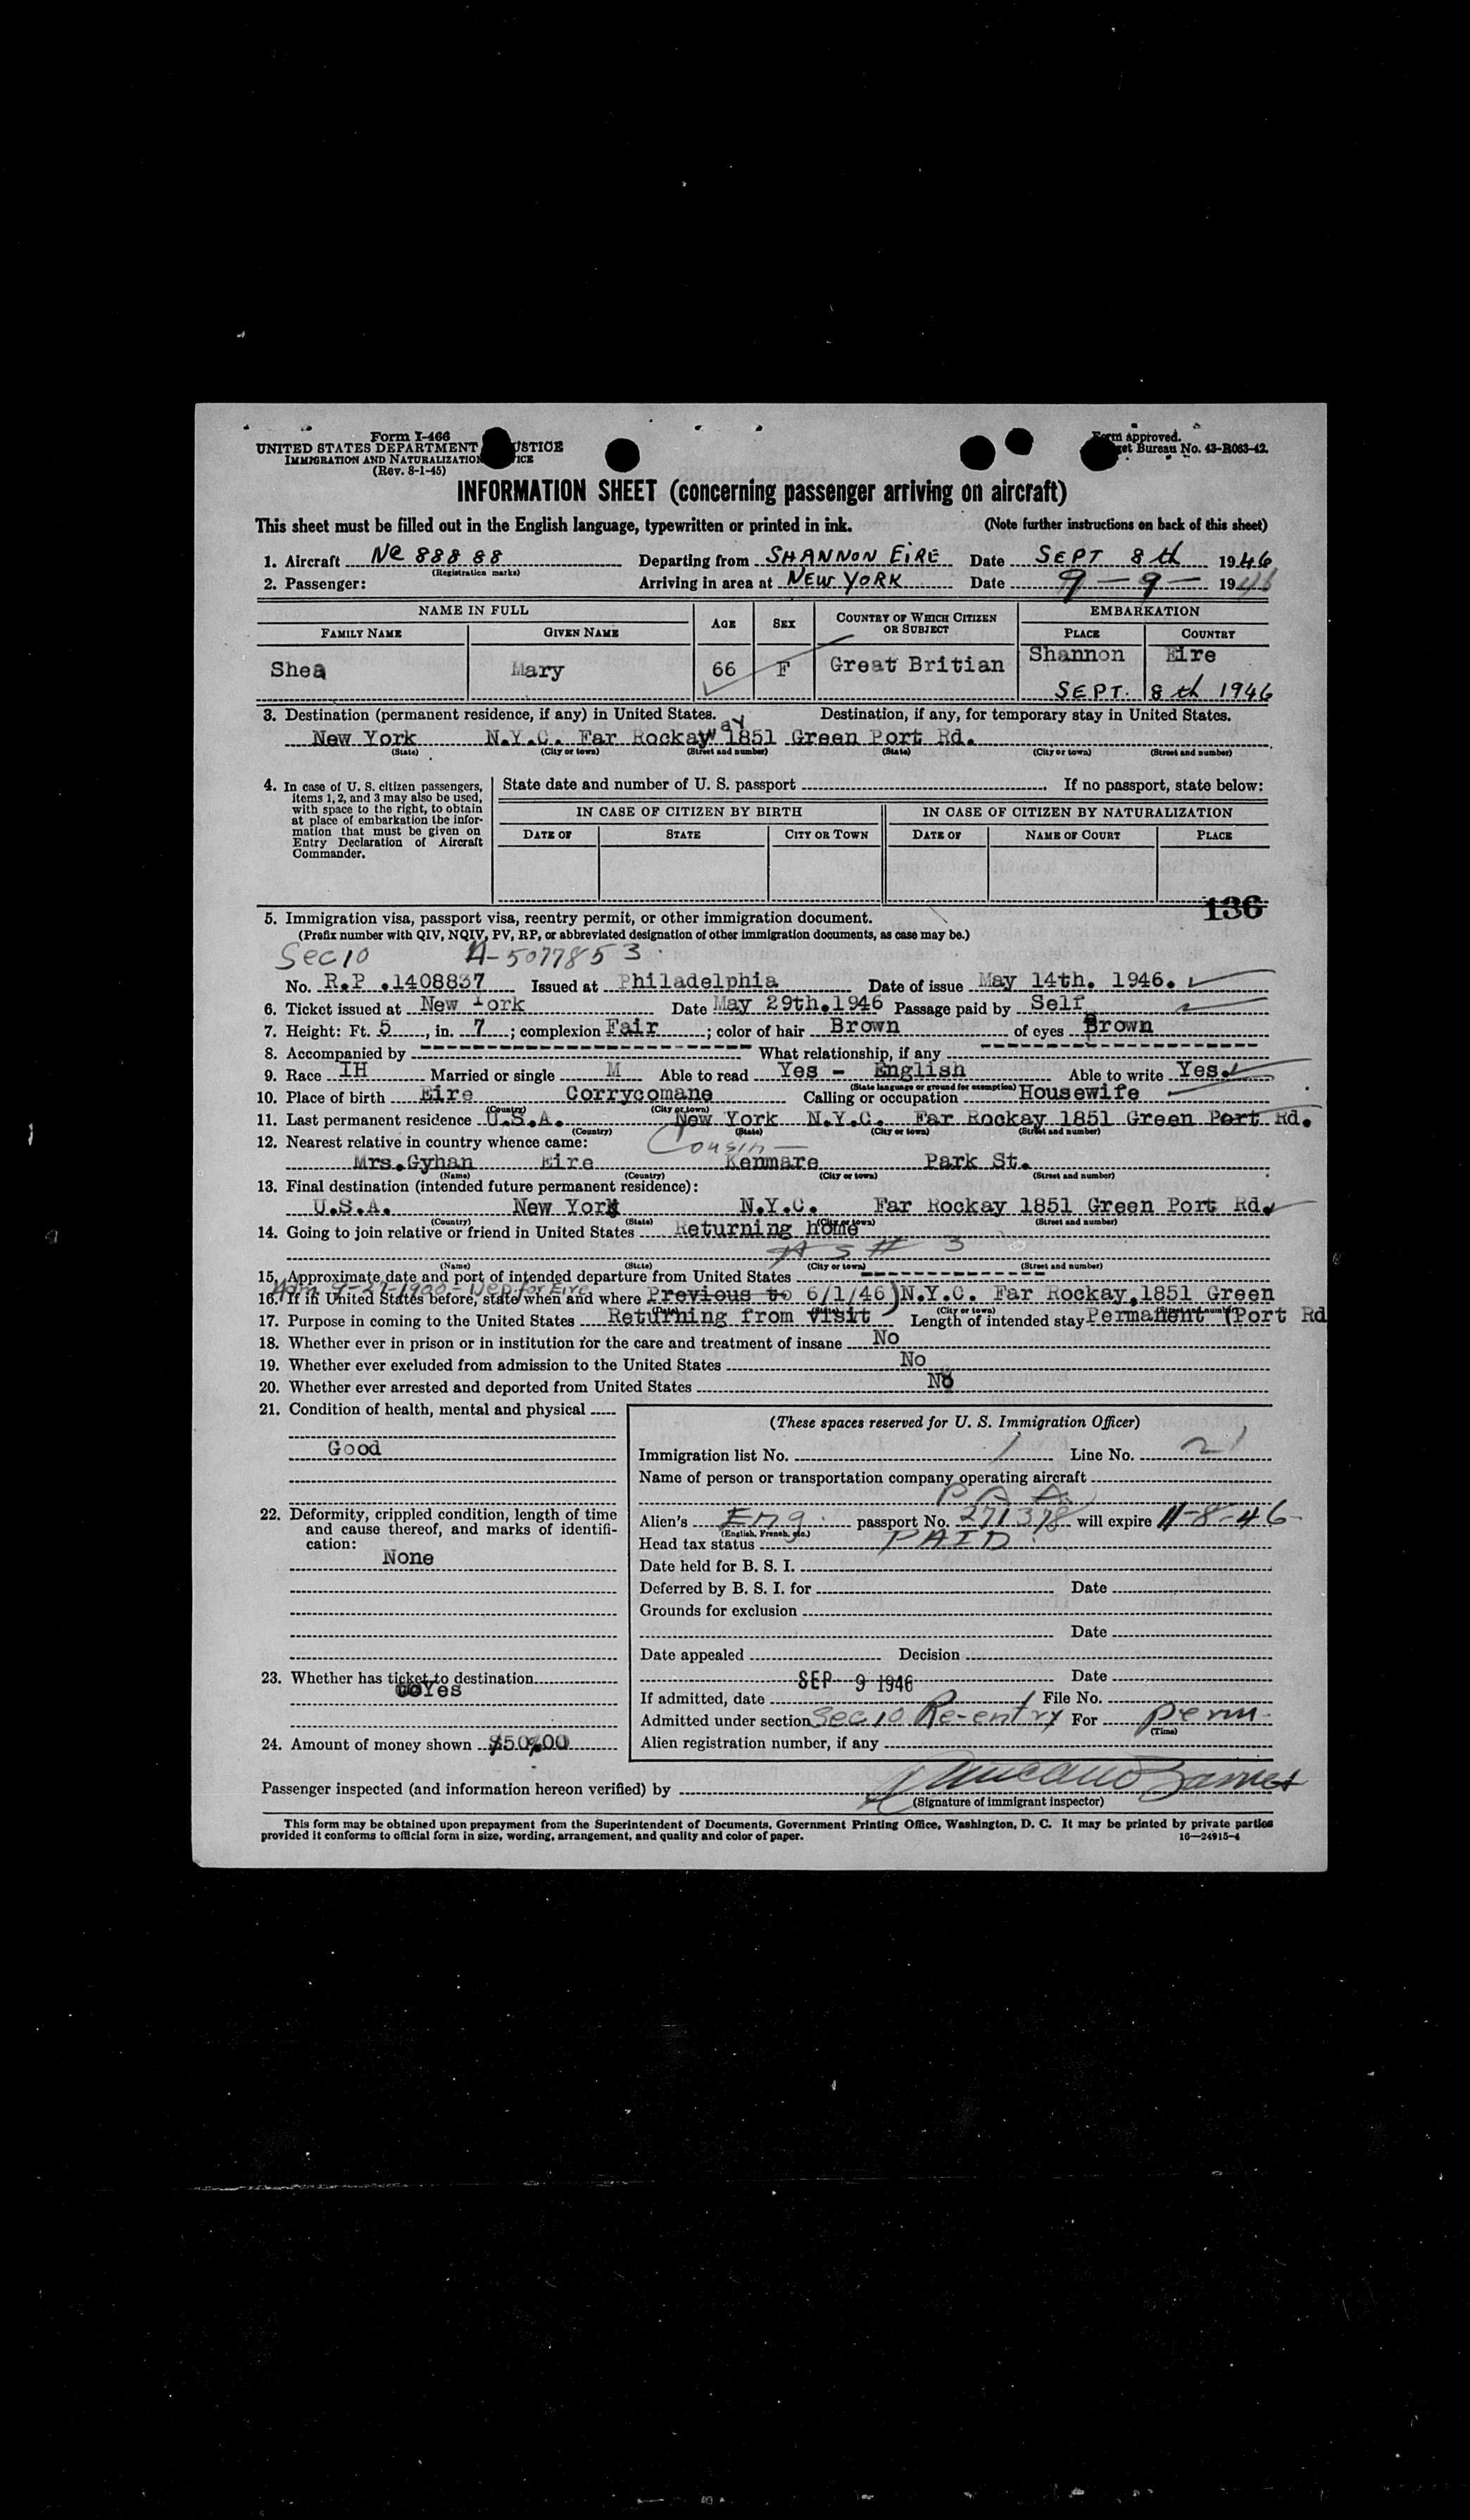 Form I-466
UNITED STATES DEPARTMENT JUSTICE
IMMIGRATION AND NATURALIZATION SERVICE
(Rev. 8-1-45)
Form approved.
Budget Bureau No. 43-R063-42.
INFORMATION SHEET (concerning passenger arriving on aircraft)
This sheet must be filled out in the English language, typewritten or printed in ink. (Note further instructions on back of this sheet)
1. Aircraft Nc 88888 Departing from SHANNON EIRE Date SEPT 8th 1946
(Registration marks)
2. Passenger: Arriving in area at NEW YORK Date 9-9- 1946
NAME IN FULL AGE SEX COUNTRY OF WHICH CITIZEN OR SUBJECT EMBARKATION
FAMILY NAME GIVEN NAME PLACE COUNTRY
Shea Mary 66 F Great Britian Shannon Eire
SEPT. 8th 1946
3. Destination (permanent residence, if any) in United States. Destination, if any, for temporary stay in United States.
New York N.Y.C. Far Rockaway 1851 Green Port Rd.
(State) (City or town) (Street and number) (State) (City or town) (Street and number)
4. In case of U. S. citizen passengers, items 1, 2, and 3 may also be used, with space to the right, to obtain at place of embarkation the information that must be given on Entry Declaration of Aircraft Commander.
State date and number of U. S. passport If no passport, state below:
IN CASE OF CITIZEN BY BIRTH IN CASE OF CITIZEN BY NATURALIZATION
DATE OF STATE CITY OR TOWN DATE OF NAME OF COURT PLACE
136
5. Immigration visa, passport visa, reentry permit, or other immigration document.
(Prefix number with QIV, NQIV, PV, RP, or abbreviated designation of other immigration documents, as case may be.)
Sec 10 A-5077853
No. R.P .1408837 Issued at Philadelphia Date of issue May 14th. 1946.
6. Ticket issued at New York Date May 29th.1946 Passage paid by Self
7. Height: Ft. 5, in. 7; complexion Fair; color of hair Brown of eyes Brown
8. Accompanied by What relationship, if any
9. Race IH Married or single M Able to read Yes - English Able to write Yes.
(State language or ground for exemption)
10. Place of birth Eire Corrycomane Calling or occupation Housewife
(Country) (City or town)
11. Last permanent residence U.S.A. New York N.Y.C. Far Rockay 1851 Green Port Rd.
(Country) (State) (City or town) (Street and number)
12. Nearest relative in country whence came: Cousin
Mrs.Gyhan Eire Kenmare Park St.
(Name) (Country) (City or town) (Street and number)
13. Final destination (intended future permanent residence):
U.S.A. New York N.Y.C. Far Rockay 1851 Green Port Rd.
(Country) (State) (City or town) (Street and number)
14. Going to join relative or friend in United States Returning home
As # 3
(Name) (State) (City or town) (Street and number)
15. Approximate date and port of intended departure from United States
Adm 9-27-1900 - Dep for Eire
16. If in United States before, state when and where Previous to 6/1/46) N.Y.C. Far Rockay,1851 Green
(Date) (State) (City or town) (Street and number)
17. Purpose in coming to the United States Returning from visit Length of intended stay Permanent (Port Rd
18. Whether ever in prison or in institution for the care and treatment of insane No
19. Whether ever excluded from admission to the United States No
20. Whether ever arrested and deported from United States No
21. Condition of health, mental and physical
Good
22. Deformity, crippled condition, length of time and cause thereof, and marks of identification:
None
23. Whether has ticket to destination
Yes
24. Amount of money shown $50.00
(These spaces reserved for U. S. Immigration Officer)
Immigration list No. 1 Line No. 21
Name of person or transportation company operating aircraft
P A A
Alien's Eng. passport No. 271378 will expire 11-8-46
(English, French, etc.)
Head tax status PAID
Date held for B. S. I.
Deferred by B. S. I. for Date
Grounds for exclusion
Date
Date appealed Decision
SEP 9 1946 Date
If admitted, date File No.
Admitted under section Sec 10 Re-entry For perm
(Time)
Alien registration number, if any
Passenger inspected (and information hereon verified) by
(Signature of immigrant inspector)
This form may be obtained upon prepayment from the Superintendent of Documents, Government Printing Office, Washington, D. C. It may be printed by private parties
provided it conforms to official form in size, wording, arrangement, and quality and color of paper. 16—24915-4